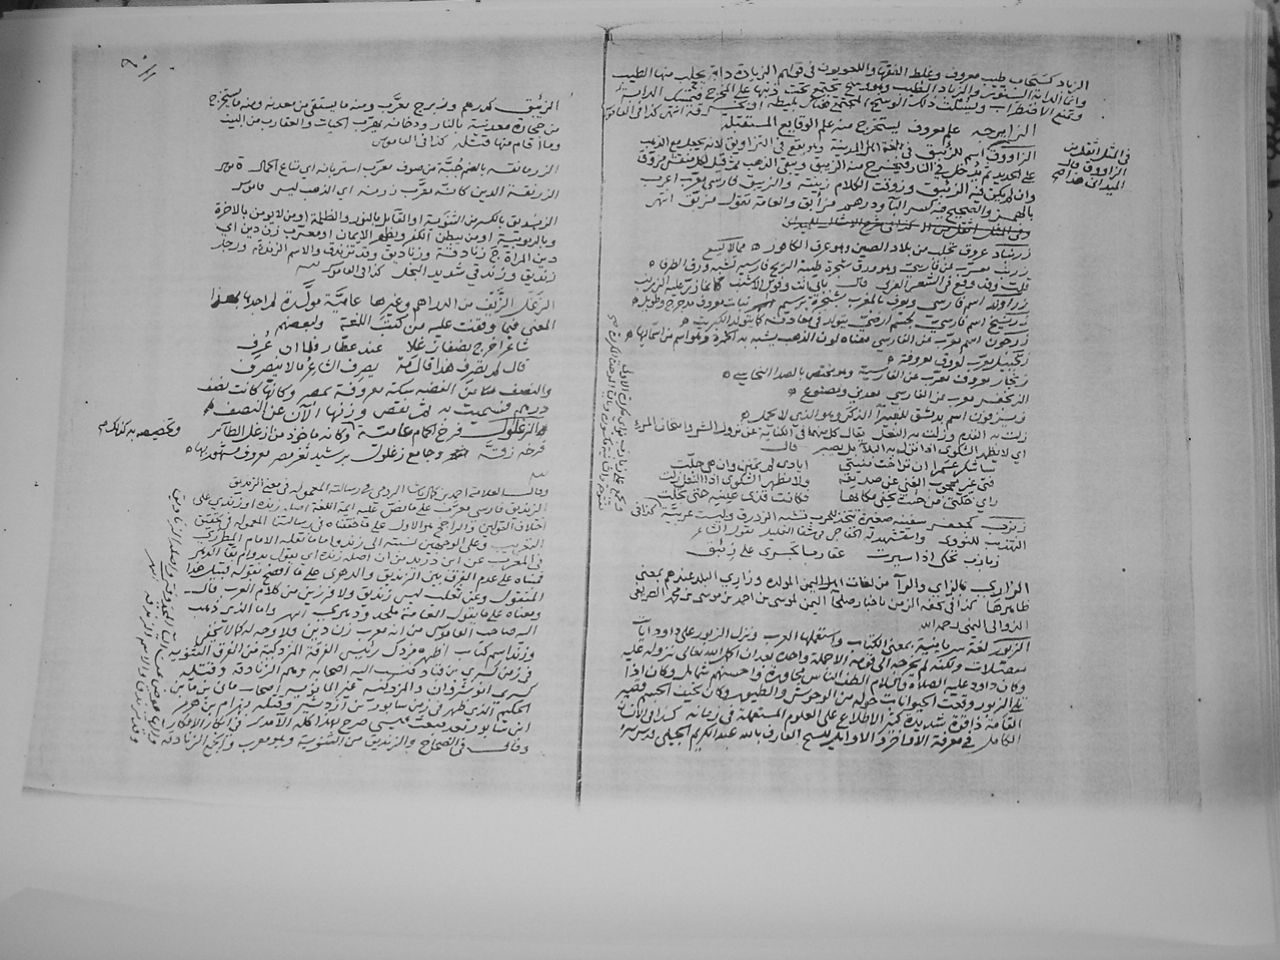 الزباد كسحاب طيب معروف وغلط الفقهآ واللغويون فى قولهم الزبادة دابة يجلب منها الطيب
وانما الدابة السنور والزباد الطيب وهو وسخ يجتمع تحت ذنبها على المخرج فتمسك الدابة
وتمنع الاضطراب ويسلت ذلك الوسخ المجتمع هناك بليطة او بخرقة انتهى كذا فى القاموس
الزايرجه علم معروف يستخرج منه علم الوقايع المستقبلة
الزاووق اسم للزئبق فى لغة اهل المدينة وهو يقع فى التزاويق لانه يجعل مع الذهب
على الحديد ثم يدخل فى النار فيخرج منه الزيبق ويبقى الذهب ثم قيل لكل منقش مزوق
وان لم يكن فيه الزئبق وزوقت الكلام زينته والزيبق فارسى معرب اعرب
بالهمز والصحيح فيه كسر البآء ودرهم مزأبق والعامة تقول مزبق انتهى
فى المثل اثقل من
الزاووق قال
الميدانى هذا
زرنباد عروق تجلب من بلاد الصين وهو عرق الكافور
زرنب معرب عن فارسية وهو ورق شجرة طيبة الريح فارسية تشبه ورق الطرفا
قلت وقد وقع فى الشعر العربى قال بابى انت وفوك الاشنب كانما ذر عليه الزرنب
زراوند اسم فارسى ويعرف بالمغرب بشجرة برستم نبات معروف مدحرج وطويل
زرنيخ اسم فارسى لجسم ارضى يتولد فى معادنه كما يتولد الكبريت
زرجون اسم معرب عن الفارسى معناه لون الذهب يشبه به الخمرة وهو اسم من اسمآئها
زنجبيل معرب لعروق معروفة
زنجار معروف معرب عن الفارسية وهو مختص بالصدا النحاسى
الزنجفر معرب عن الفارسى معدنى ومصنوع
زبزفون اسم بدمشق للغبيرآ الذكر وهو الذى لا يحمل
زلت به القدم وزلت به النعل يقال كل منهما فى الكناية عن نزول الشر وامتحان المرء
اى لا يظهر الشكوى اذا نزل به البلآء بل يصبر قال
سأشكر عمرا ان تراخت منيتى ايادى لم تمنن وان هى جلت
فتى غير محجوب الغنى عن صديقه ولا مظهر الشكوى اذا النعل زلت
راى خلتى من حيث يخفى مكانها فكانت قذى عينيه حتى تجلت
زبزب كجعفر سفينة صغيرة تتخذ للحرب تشبه الزورق وليست عربية كذا فى
التهذيب للنووى واستشهد له الخفاجى فى شفآ الغليل بقول الشاعر
زبازب تحكى اذا سيرت عقاربا تجرى على زئبق
الزوارى بالزاى والرآ من لغات اهل اليمن المولدة وزارى البلد عندهم بمعنى
ظاهرها كذا فى تحفة الزمن باخبار صلحآ اليمن لموسى بن احمد بن موسى بن محمد
الزوالى اليمنى رحمه الله
الزبور لغة سريانية بمعنى الكتاب واستعملها العرب ونزل الزبور على داود ايات
مفصلات ولكنه لم يخرجه الى قومه الا جملة واحدة بعد ان اكمل الله تعالى نزوله عليه
وكان داود عليه الصلاة والسلام الطف الناس محاورة واحسنهم شمايل وكان اذا
تلى الزبور وقفت الحيوانات حوله من الوحوش والطيور وكان نحيف الجسم قصير
القامة ذا قوة شديدة كثير الاطلاع على العلوم المستعملة فى زمانه كذا فى الانسان
الكامل فى معرفة الاواخر والاوائل للشيخ العارف بالله عبد الكريم الجيلى قدس سره
الزئبق كدرهم وزبرج معرب ومنه ما يستقى من معدنه ومنه ما يستخرج
من حجارة معدنية بالنار ودخانه يهرب الحيات والعقارب من البيت
وما اقام منها قتله كذا فى القاموس
الزرمانقة بالضم جبة من صوف معرب اشتربانه اى متاع الجمال قاموس
الزرنقة الدين كانه معرب زرنه اى الذهب ليس قاموس
الزنديق بالكسر من الثنوية او القايل بالنور والظلمة او من لا يومن بالاخرة
وبالربوبية او من يبطن الكفر ويظهر الايمان او معرب زن دين اى
دين المرأة ج زنادقة وزناديق وقد تزندق والاسم الزندقة ورجل
زنديق وزندقى شديد البخل كذا فى القاموس
الزغل الزيف من الدراهم وغيرها عامية مولدة لم اجدها بهذا
المعنى فيما وقفت عليه من كتب اللغة ولبعضهم
شاعر اخرج نصفا زغلا عند عطار فلما ان عرف
قال لم يصرف هذا قال كم يصرف الشاعر ما لا ينصرف
والنصف من الفضة سكة معروفة بمصر وكانها كانت نصف
درهم فسميت به ثم نقص وزنها الآن عن النصف
والزغلول فرخ الحمام عامية وكانه ماخوذ من ازغل الطآئر
فرخه زقه وجامع زغلول برشيد ثغر مصر معروف
وقال العلامة احمد بن كمال باشا الرومى فى رسالته المعمولة فى معنى الزنديق
الزنديق فارسى معرب على ما نص عليه ايمة اللغة اصله زنده او زندى على
اختلاف القولين والراجح هو الاول على ما حققناه فى رسالتنا المعمولة فى تحقيق
التعريب وعلى الوجهين نسبته الى زند واما ما نقله الامام المطرزى
فى المغرب عن ابن دريد من ان اصله زنده اى يقول بدوام بقآ الدهر
فمبناه على عدم الفرق بين الزنديق والدهرى على ما افصح بقوله قبيل هذا
المنقول وعن ثعلب ليس زنديق ولا فرزين من كلام العرب قال
ومعناه على ما يقول العامة ملحد ودهرى انتهى واما الذى ذهب
اليه صاحب القاموس من انه معرب زن دين فلا وجه له كما لا يخفى
وزند اسم كتاب اظهره مزدك رئيس الفرقة المزدكية من الفرق الثنوية
فى زمن كسرى بن قباد فنسب اليه اصحابه وهم الزنادقة وقتله
كسرى انوشروان والمزدكية غير المانوية اصحاب مانى بن ماتن
الحكيم الذى ظهر فى زمن سابور بن اردشير وقتله بهرام بن هرمز
ابن سابور بعد مبعث عيسى صرح بهذا كله الامدى فى ابكار الافكار
وقال فى الصحاح والزنديق من الثنوية وهو معرب والجمع الزنادقة